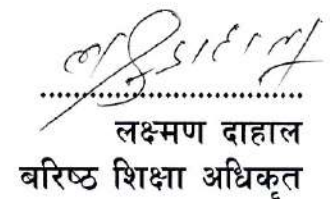 लक्ष्मण दाहाल
बरिष्ठ शिक्षा अधिकृत